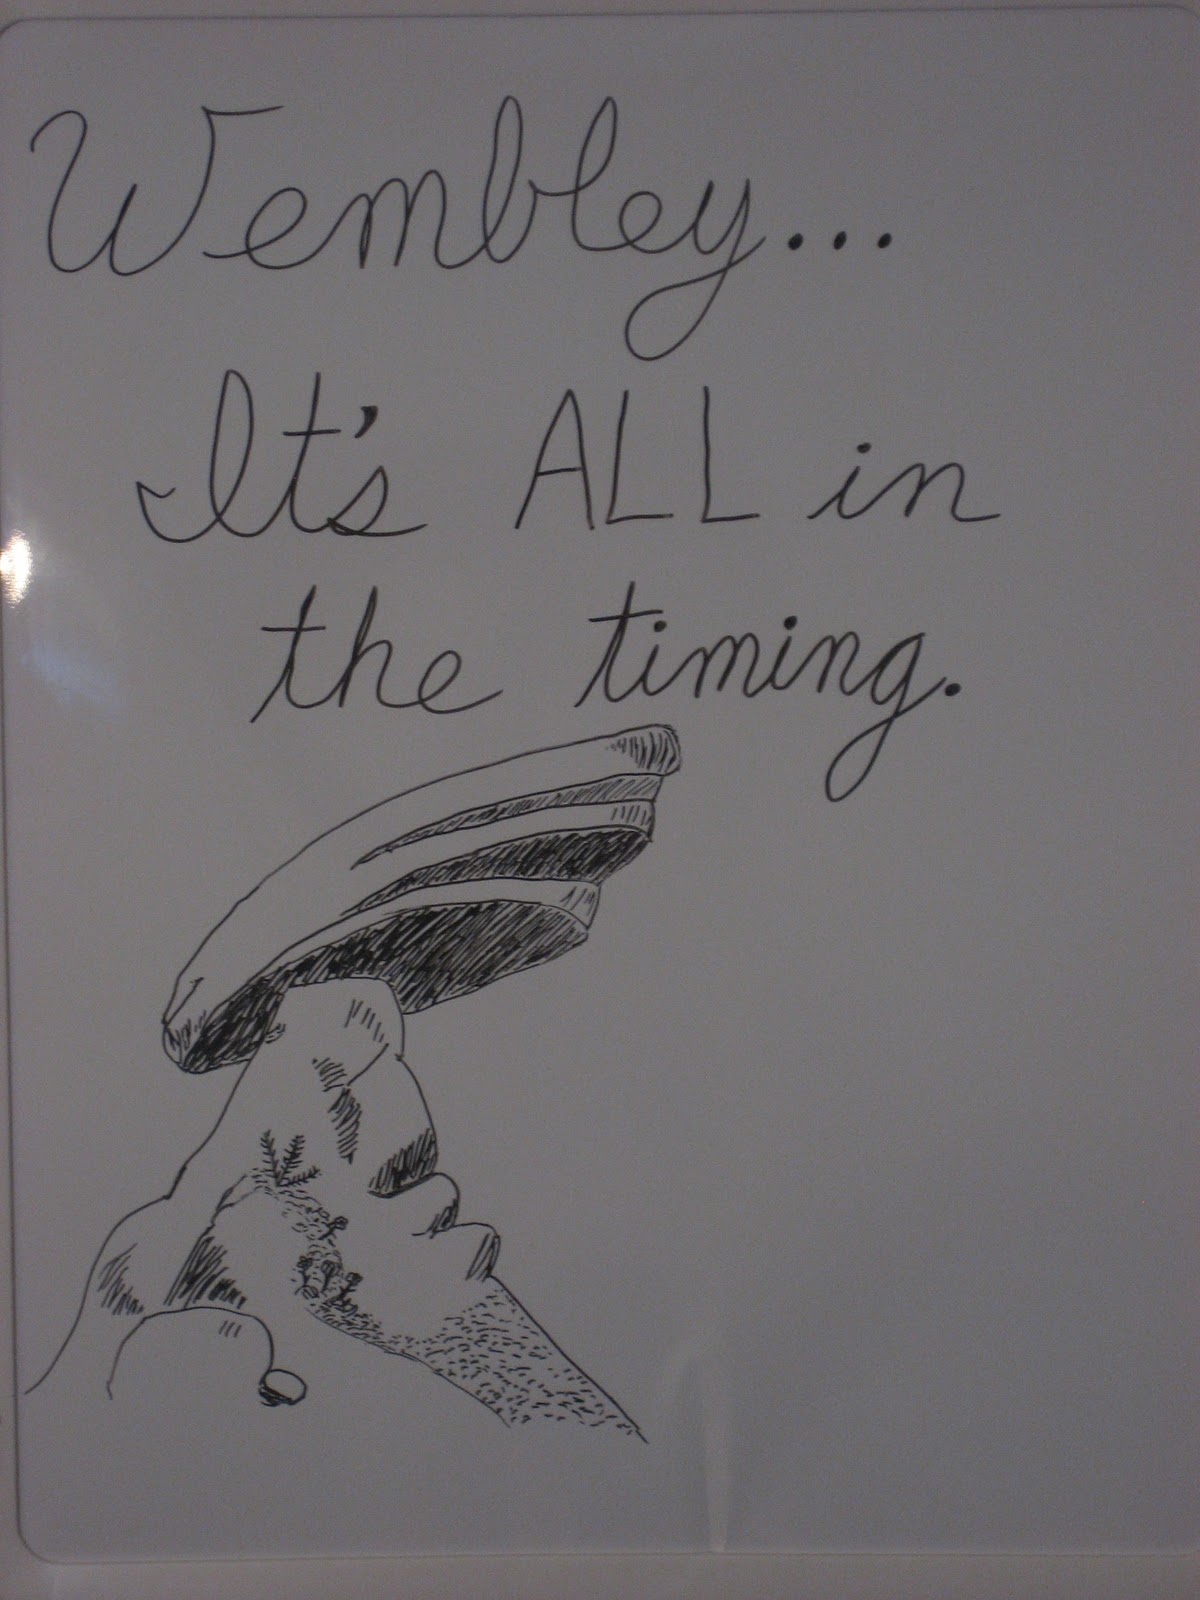 Wembley...
It's ALL in
the timing.